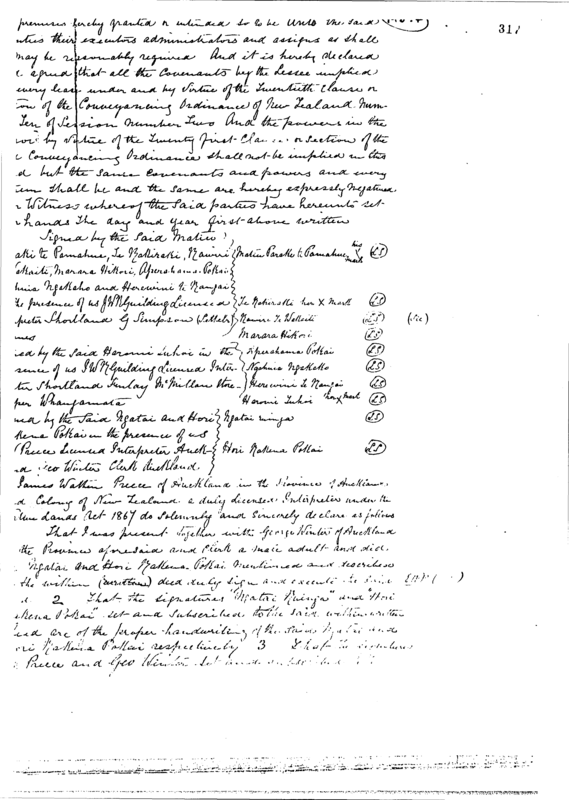 317
premises hereby granted or intended so to be unto the said
their executors administrators and assigns as shall
may be reasonably required And it is hereby declared
agreed that all the Covenants by the Lessee implied
every lease under and by Virtue of the Twentieth clause or
of the Conveyancing Ordinance of New Zealand Num-
Ten of Session Number Two And the powers in the
by Virtue of the Twenty first Clause or Section of the
Conveyancing Ordinance shall not be implied in this
d but the same covenants and powers and every
shall be and the same are hereby expressly Negatived
Witness whereof the said parties have hereunto set
hands The day and year first above written
Signed by the said Matiu
aki te Pamahue, Te Nakiraki, Naweri Matiu Paraki te Pamahue his X mark LS
Marara Hikori, Aperahama Pokai
Ngakoho and Herewini te Nangai
presence of us JWR Guilding Licensed Te Nakiraki her X mark LS
preter Shortland G Simpson (Settler) Nawere Te LS (Sic)
Marara Hikori LS
ed by the said Haromi Tuhoi in the Aperahama Pokai LS
sence of us J W R Guilding Licensed Inter- Ngakoho LS
ter Shortland Finlay McMillan Store- Herewini Te Nangai LS
per Whangamata Haromi Tuhoi her X mark LS
ned by the said Ngatai and Hori Ngatai LS
kena Pokai in the presence of us
Preece Licensed Interpreter Auck- Hori Nakena Pokai LS
Geo Winter Clerk Auckland.
James Watkin Preece of Auckland in the Province of Auckland
d Colony of New Zealand a duly licensed Interpreter under the
Lands Act 1867 do Solemnly and Sincerely declare as follows
That I was present together with George Winter of Auckland
the Province aforesaid and Clerk a male adult and did
Ngatai and Hori Nakena Pokai mentioned and described
the within deed duly sign and execute the said
2 That the signatures "Ngatai" and "Hori
kena Pokai" set and subscribed to the said within written
deed are of the proper handwriting of the said Ngatai and
ori Nakena Pokai respectively 3 That the signatures
Preece and Geo Winter set and subscribed